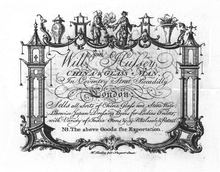 Will.m Hussey,
CHINA & GLASS MAN,
In Coventry Street Piccadilly
London;
Sells all sorts of China Glass and Stone Ware
Likewise Japan Dressing Boxes for Ladies Toilets,
with Variety of India
NB. The above Goods for Exportation